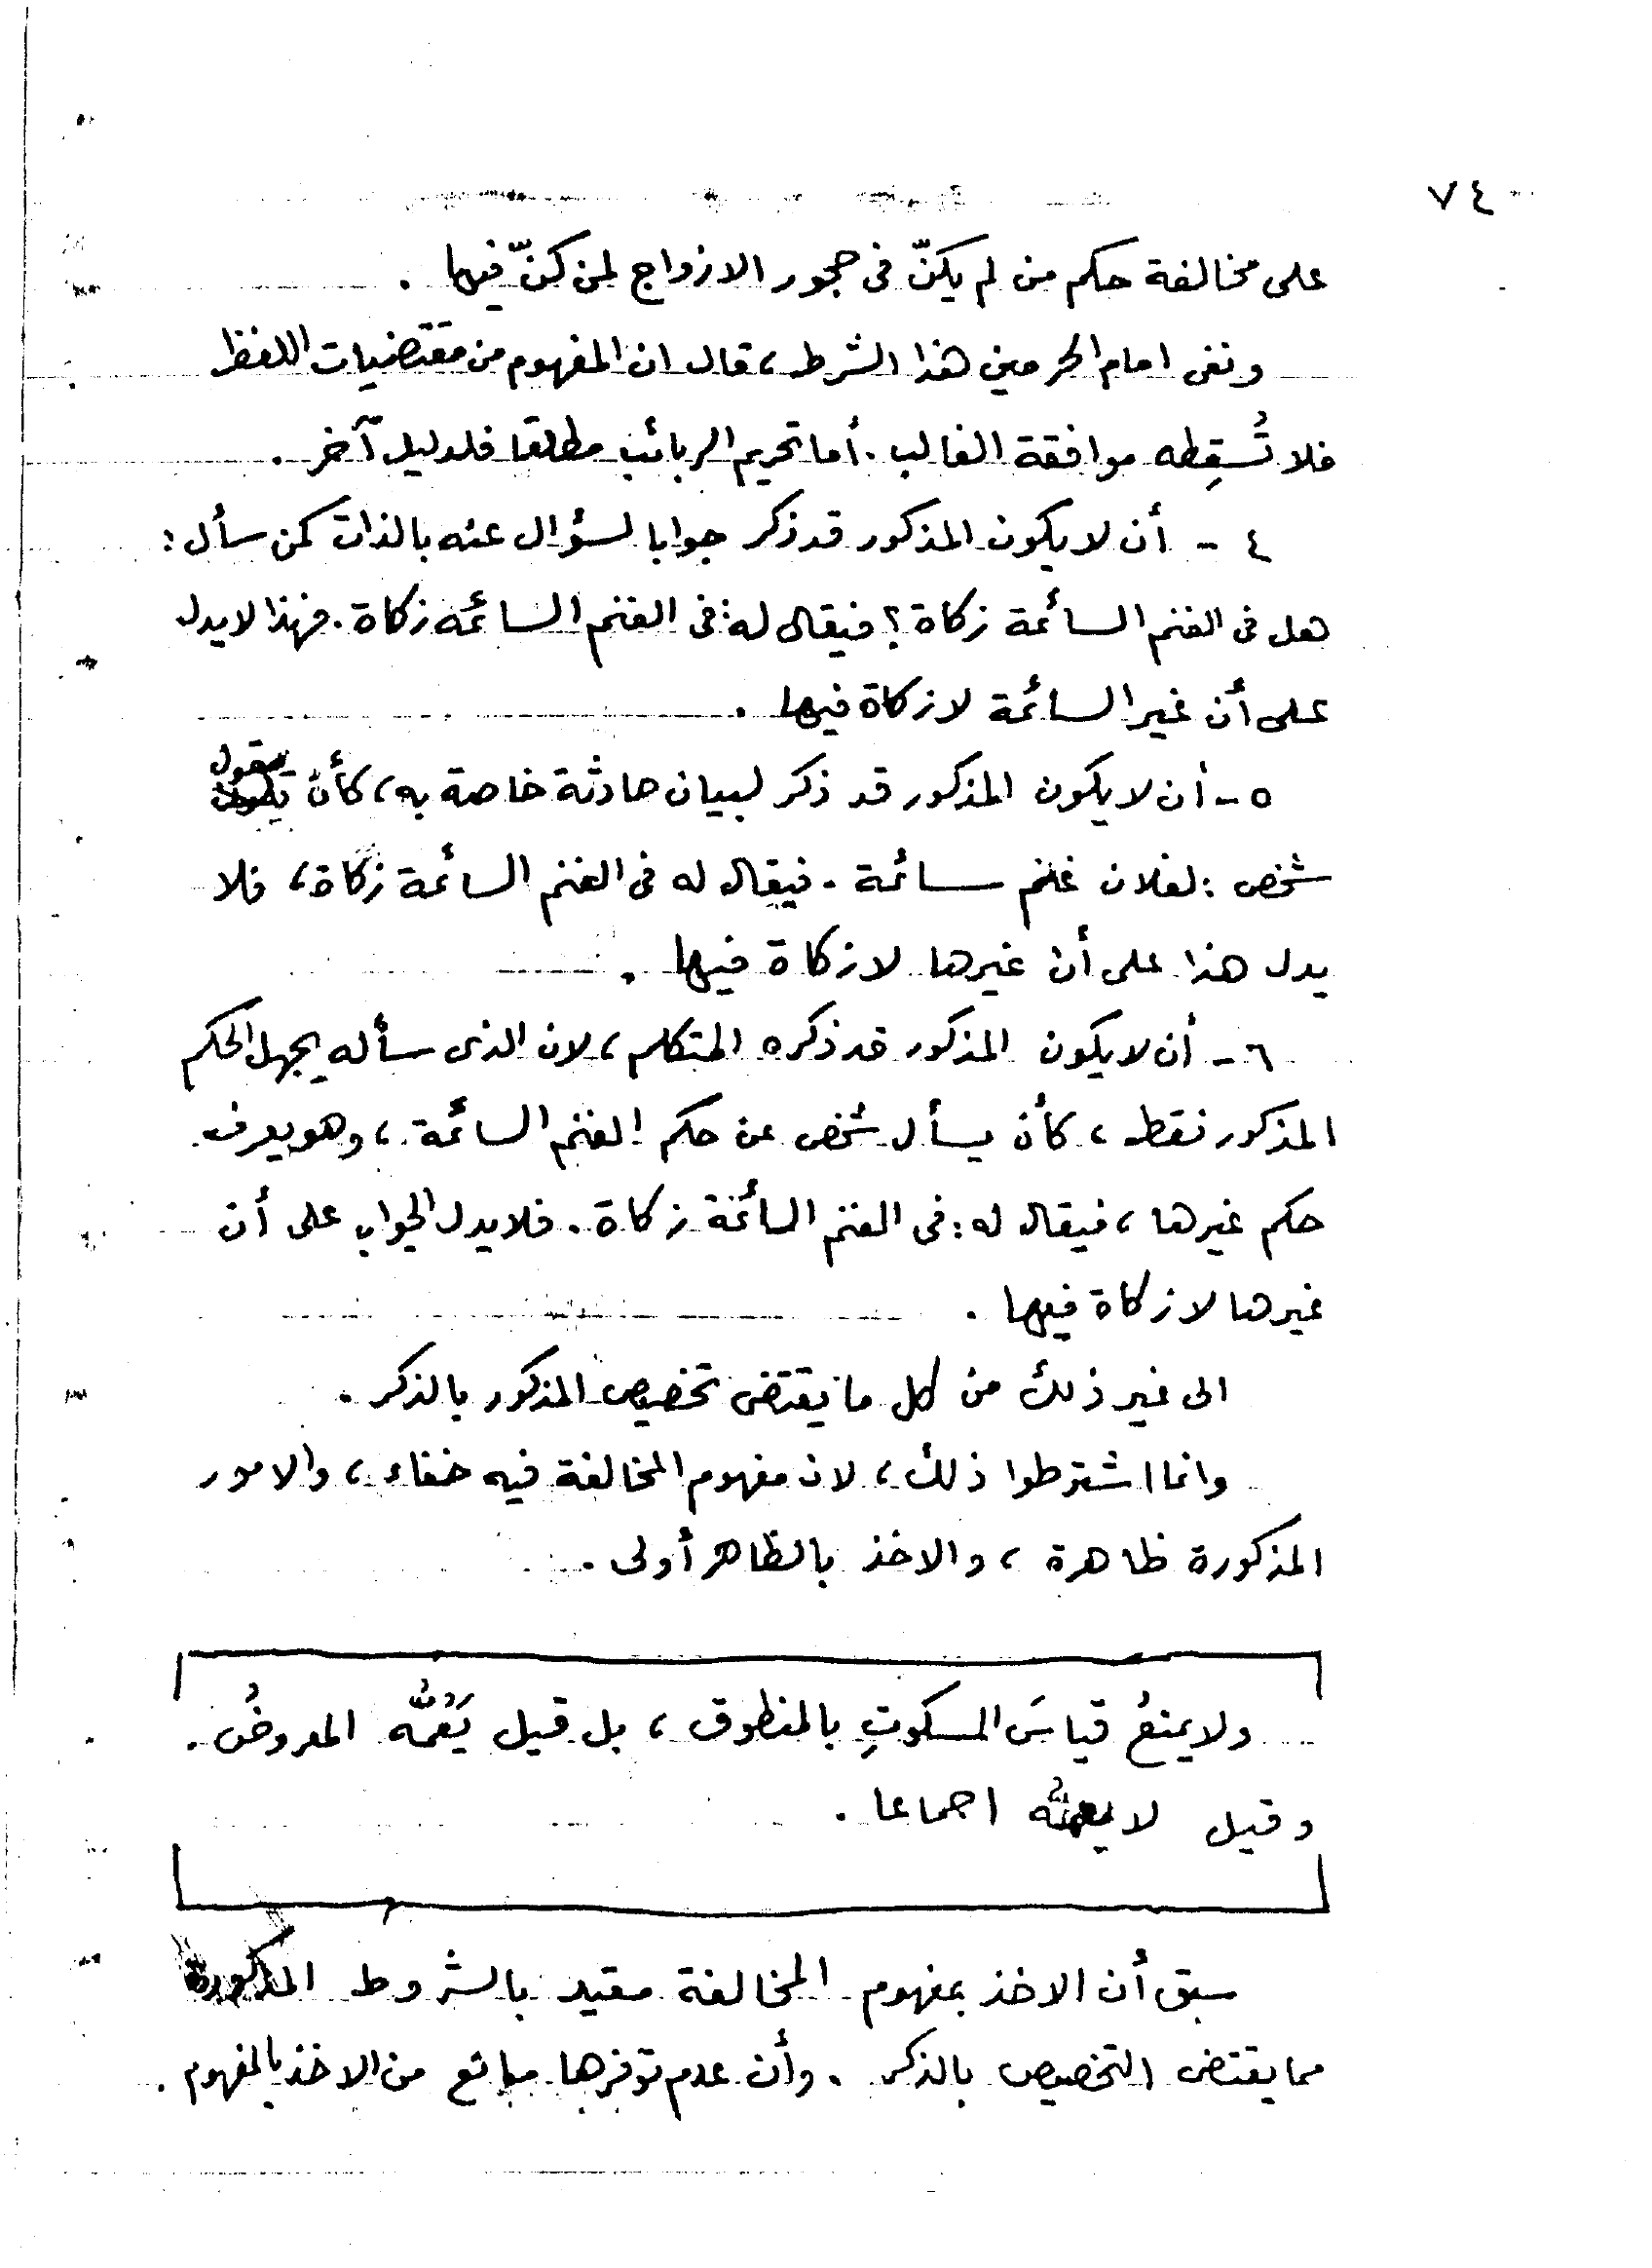 ٧٤
على مخالفة حكم من لم يكنّ فى حجور الازواج لمن كنّ فيها .
ونفى امام الحرمين هذا الشرط ، قال ان المفهوم من مقتضيات اللفظ
فلا تُسقِطه موافقة الغالب . أما تحريم الربائب مطلقا فلدليل آخر .
٤ - أن لا يكون المذكور قد ذكر جوابا لسؤال عنه بالذات كمن سأل :
هل فى الغنم السائمة زكاة ؟ فيقال له : فى الغنم السائمه زكاة . فهذا لا يدل
على أن غير السائمة لا زكاة فيها .
٥ - أن لا يكون المذكور قد ذكر لبيان حادثة خاصة به ، كأن يقول
شخص : لفلان غنم سائمة . فيقال له فى الغنم السائمة زكاة ، فلا
يدل هذا على أن غيرها لا زكاة فيها .
٦ - أن لا يكون المذكور قد ذكره المتكلم ، لان الذى سأله يجهل الحكم
المذكور فقط ، كأن يسأل شخص عن حكم الغنم السائمة ، وهو يعرف
حكم غيرها ، فيقال له : فى الغنم السائمة زكاة . فلا يدل الجواب على أن
غيرها لا زكاة فيها .
الى غير ذلك من كل ما يقتضى تخصيص المذكور بالذكر .
وانما اشترطوا ذلك ، لان مفهوم المخالفة فيه خفاء ، والامور
المذكورة ظاهرة ، والاخذ بالظاهر أولى .
ولا يمنعُ قياسَ المسكوتِ بالمنطوق ، بل قيل يَعُمُّه المعروضُ .
وقيل لا يعمُّه اجماعا .
سبق أن الاخذ بمفهوم المخالفة مقيد بالشروط المذكورة
مما يقتضى التخصيص بالذكر . وأن عدم توفرها مانع من الاخذ بالمفهوم .